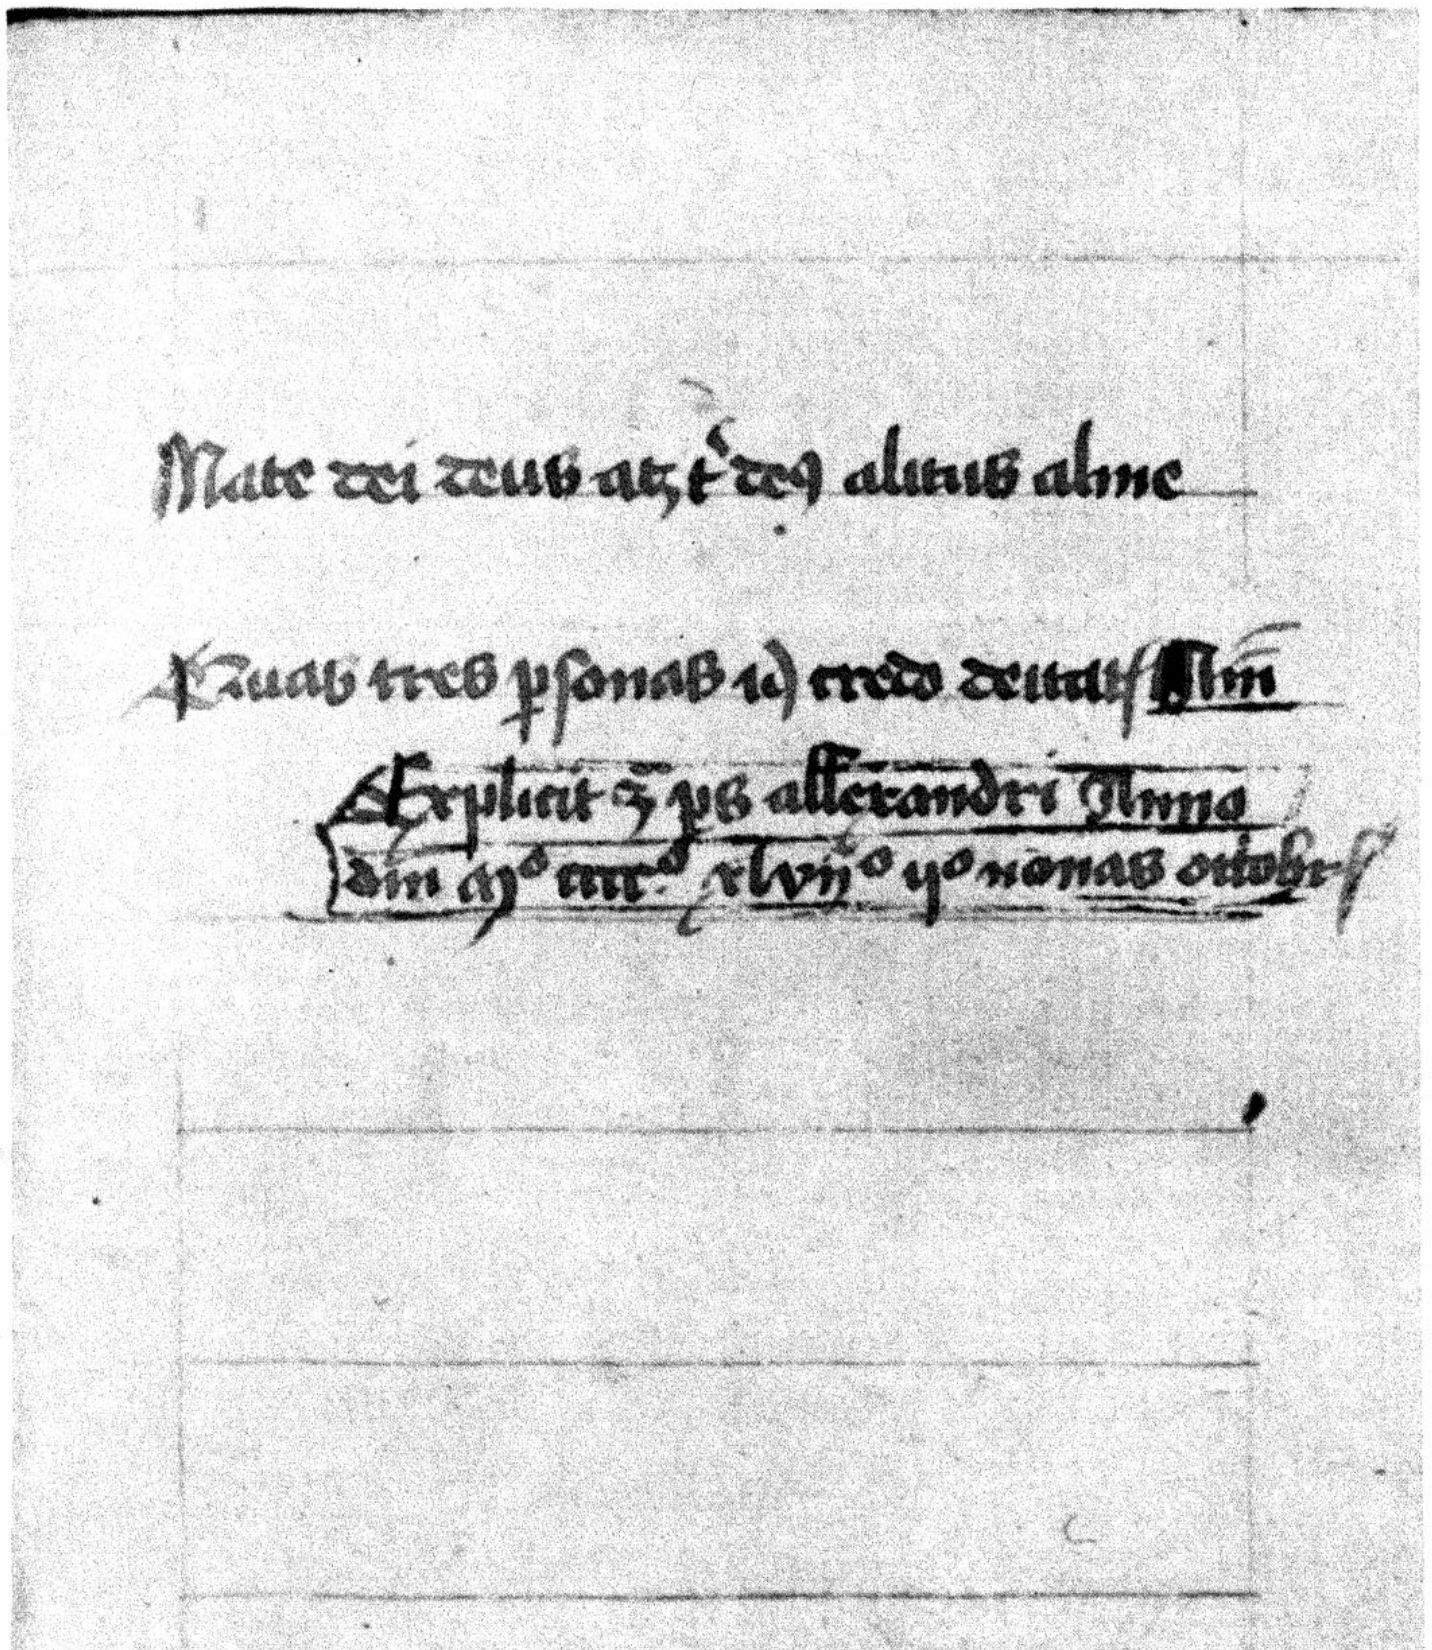 Nate dei deus atqꝫ t͛ deꝰ alitus alme
Quas tres ꝑsonas iꝰ credo deitatꝭ Am̅
Explicit 3ᵃ ps allexandri Anno
dn̅i mͦ cccͦ. xlviiͦ ijͦ nonas octobrꝭ